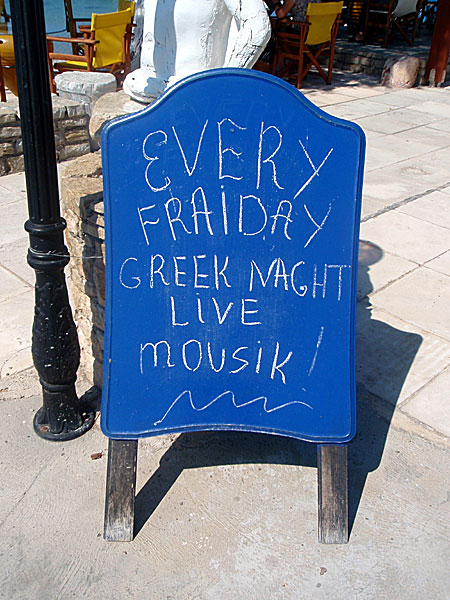 EVERY
FRAIDAY
GREEK NAGHT
LIVE
MOUSIK!